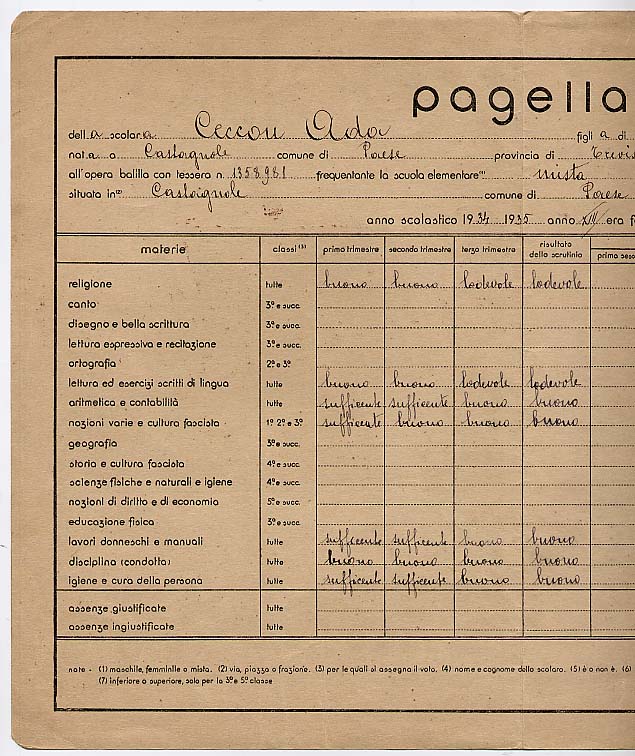 pagella
della scolara Ceccon Ada figlia di
nata a Castagnole comune di Paese provincia di Trevis
all'opera balilla con tessera n. 1358981 frequentante la scuola elementare(1) mista
situata in(2) Castagnole comune di Paese
anno scolastico 1934 1935 anno XIII era f
materie classi(3) primo trimestre secondo trimestre terzo trimestre risultato dello scrutinio prima sess
religione tutte buono buono lodevole lodevole
canto 3ª e succ.
disegno e bella scrittura 3ª e succ.
lettura espressiva e recitazione 3ª e succ.
ortografia 2ª e 3ª
lettura ed esercizi scritti di lingua tutte buono buono lodevole lodevole
aritmetica e contabilità tutte sufficente sufficente buono buono
nozioni varie e cultura fascista 1ª 2ª e 3ª sufficente buono buono buono
geografia 3ª e succ.
storia e cultura fascista 4ª e succ.
scienze fisiche e naturali e igiene 4ª e succ.
nozioni di diritto e di economia 5ª e succ.
educazione fisica 3ª e succ.
lavori donneschi e manuali tutte sufficente sufficente buono buono
disciplina (condotta) tutte buono buono buono buono
igiene e cura della persona tutte sufficente sufficente buono buono
assenze giustificate tutte
assenze ingiustificate tutte
note - (1) maschile, femminile o mista. (2) via, piazza o frazione. (3) per le quali si assegna il voto. (4) nome e cognome dello scolaro. (5) è o non è. (6)
(7) inferiore o superiore, solo per la 3ª e 5ª classe